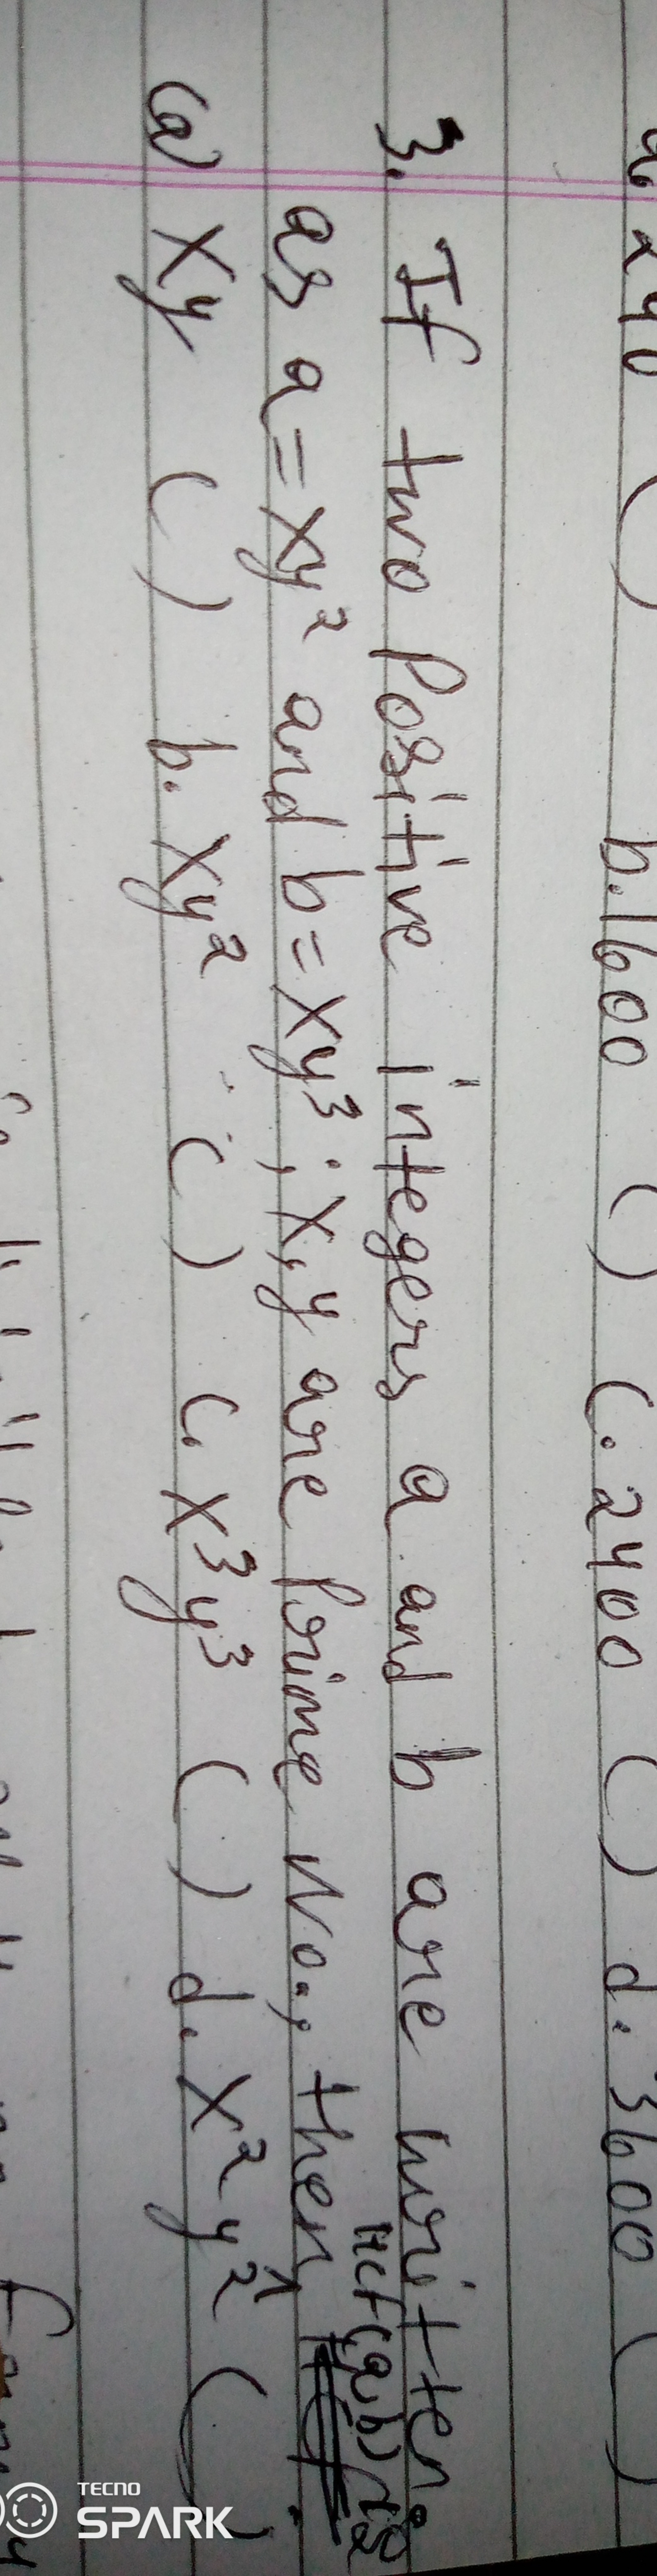 a. 240 ( ) b. 1600 ( ) c. 2400 ( ) d. 3600 ( )
3. If two positive integers a and b are written
as a = xy² and b = xy³ ; x, y are prime No., then HCF(a,b) is
(a) xy ( ) b. xy² ( ) c. x³y³ ( ) d. x²y² ( )
TECNO
SPARK